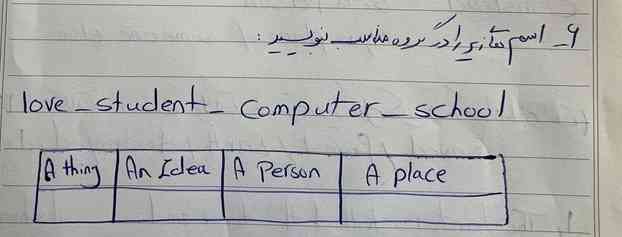 ۶_ اسم های زیر را در گروه مناسب بنویسید :
love _ student _ computer _ school
A thing An Idea A Person A place